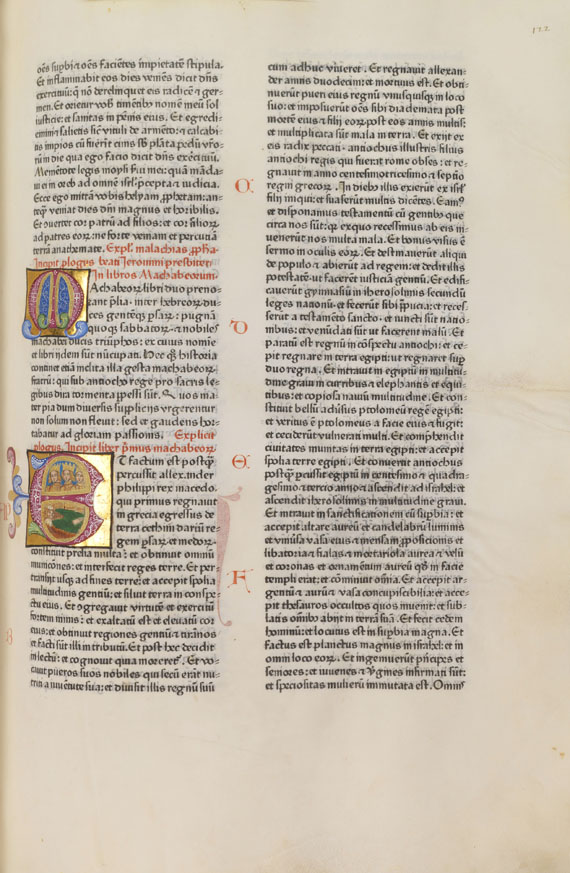 122
oēs supbi ⁊ oēs faciētes impietatē stipula.
Et inflammabit eos dies veniēs dicit dn̄s
exercituū: q̄ nō derelinquet eis radicē ⁊ ger-
men. Et orietur vob̓ timētibꝰ nomē meū sol
iusticie: et sanitas in pēnis eius. Et egredi-
emini ⁊ salietis sic̄ vituli de armēto: ⁊ calcabi-
tis impios cū fuerit cinis sb̓ plāta pedū vr̄o-
rū in die qua ego facio dicit dn̄s exercituū.
Memētote legis moysi ẜui mei: quā māda-
ui ei in oreb ad omnē isrl̓ p̄cepta ⁊ iudicia.
Ecce ego mittā vobis helyam ꝓphetam: an-
teq̄ veniat dies dn̄i magnus et horibilis.
Et cōuertet cor patrū ad filios: et cor filioꝝ
ad patres eoꝝ: ne forte veniam et percutiā
terrā anathemate. Expl̓. malachias ꝓph̄a.
Incipit ꝓlogus beati Jeronimi presbiteri
In libros Machabeorum.
Machabeoꝝ libri duo preno-
tant p̄lia. inter hebreoꝝ du-
ces gentēq̄ psaꝝ: pugnā
quoq̄ sabbatoꝝ. ⁊ nobiles
machabei ducis triūphos: ex cuius nomie
et libri ijdem sūt nūcupati. Hec q̄ historia
continet etiā inclita illa gesta machabeoꝝ
fratrū: qui sub antiocho rege pro sacris le-
gibus dira tormenta ꝑpessi sūt. Quos ma-
ter pia dum diuersis suppliciis vrgerentur
non solum non fleuit: sed et gaudens hor-
tabatur ad gloriam passionis. Explicit
ꝓlogus. Incipit liber p̄mus machabeoꝝ
Et factum est postq̄
percussit allexander
philippi rex macedo.
qui primus regnauit
in grecia egressus de
terra cethim dariū re-
gem psaꝝ et medoꝝ.
constituit prelia multa: et obtinuit omniū
municiōes: et interfecit reges terre. Et per-
transijt usq̄ ad fines terre: et accepit spolia
multitudinis gentiū: et siluit terra in conspe-
ctu eius. Et ↄgregauit virtutē et exercitū
fortem nimis: et exaltatū est et eleuatū cor
eius: et obtinuit regiones gentiū et tirānos
et facti sūt illi in tributū. Et post hec decidit
in lectū: et cognouit quia moreret̓. Et vo-
cauit pueros suos nobiles qui secū erāt nu-
triti a iuuentute sua: et diuisit illis regnū suū
cum adhuc viueret. Et regnauit allexan-
der annis duodecim: et mortuus est. Et obti-
nuerūt pueri eius regnū vnusquisq̄ in loco
suo: et imposuerūt oēs sibi diademata post
mortē eius ⁊ filij eoꝝ post eos annis multis:
et multiplicata sūt mala in terra. Et exijt ex
eis radix peccati. antiochus illustris filius
antiochi regis qui fuerat rome obses: et re-
gnauit in anno centesimotricesimo ⁊ septīo
regni grecoꝝ. In diebꝰ illis exierūt ex isrl̓
filij iniqui: et suaserūt multis dicētes. Eamꝰ
et disponamus testamentū cū gentibꝰ que
circa nos sūt: q̄ exquo recessimus ab eis in-
uenerūt nos multa mala. Et bonus visus ē
sermo in oculis eoꝝ. Et destinauerūt aliqui
de populo ⁊ abierūt ad regem: et dedit illis
potestatē. ut facerēt iusticiā gentiū. Et edifi-
cauerūt gymnasiū in iherosolimis secundū
leges nationū: et fecerūt sibi p̄pucia: et reces-
serūt a testamēto sancto. et iuncti sūt natio-
nibus: et venūdati sūt ut facerent malū. Et
paratū est regnū in cōspectu antiochi: et ce-
pit regnare in terra egipti: ut regnaret sup̄
duo regna. Et intrauit in egiptū in multitu-
dine graui in curribus ⁊ elephantis et equi-
tibus: et copiosa nauiū multitudine. Et con-
stituit bellū aduersus ptolomeū regē egipti:
et veritus ē ptolomeus a facie eius ⁊ fugit:
et ceciderūt vulnerati multi. Et comprehendit
ciuitates munitas in terra egipti: et accepit
spolia terre egipti. Et conuertit antiochus
postq̄ percussit egiptū in centesimo ⁊ quadra-
gesimo ⁊ tercio anno: ⁊ ascendit ad israhel: et
ascendit iherosolimis in multitudine graui.
Et intrauit in sanctificationem cū supbia: et
accepit altare aureū et candelabrū luminis
et vniuersa vasa eius ⁊ mensam ꝓposicionis et
libatoria: ⁊ fialas ⁊ mortariola aurea ⁊ velū
et coronas et ornamentū aureū q̄d in facie
templi erat: et cōminuit omnia. Et accepit ar-
gentū ⁊ aurū ⁊ vasa concupiscibilia: et acce-
pit thesauros occultos quos inuenit: et sub-
latis omnibꝰ abijt in terrā suā. Et fecit cedem
hominū: et locutus est in supbia magna. Et
factus est planctus magnus in israhel: et in
omni loco eoꝝ. Et ingemuerūt p̄ncipes et
seniores: et iuuenes ⁊ v̓gines infirmati sūt:
et speciositas mulierū immutata est. Omnis